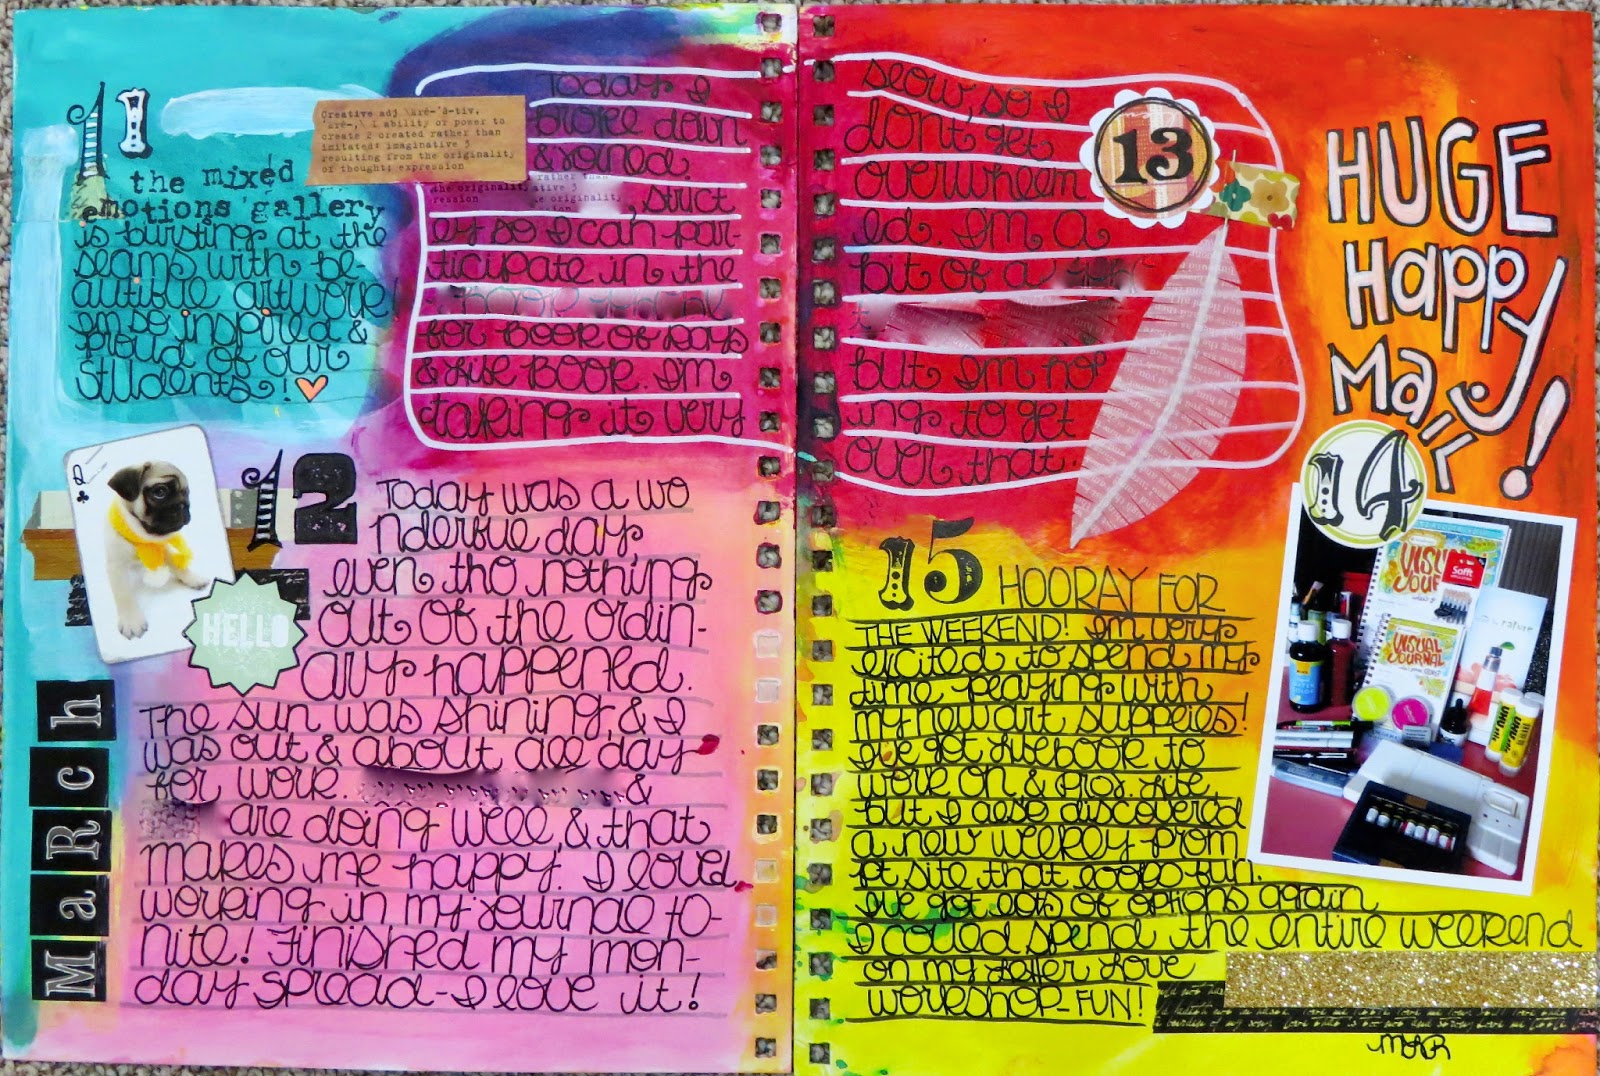 11
the mixed
emotions gallery
is bursting at the
seams with be-
autiful artwork!
I'm so inspired &
proud of our
students!
Creative adj \krē-'ā-tiv,
'krē-,\ 1 ability or power to
create 2 created rather than
imitated: imaginative 3
resulting from the originality
of thought: expression
Today I
broke down
& joined
rather than
the originality ative 3
ression the originality
, strict
ly so I can par-
ticipate in the
for Book of Days
& Life Book. I'm
taking it very
12
Today was a wo
nderful day,
even tho nothing
out of the ordin-
ary happened.
The sun was shining, & I
was out & about all day
for work. &
are doing well, & that
makes me happy. I loved
working in my journal to-
nite! Finished my mon-
day spread - I love it!
Q
HELLO
March
13
slow, so I
don't get
overwhelm
ed. I'm a
bit of a
but I'm hop
ing to get
over that.
HUGE
Happy
Mail!
14
VISUAL
JOURNAL
Soft
UHU
UHU
15
HOORAY FOR
THE WEEKEND! I'm very
excited to spend my
time playing with
my new art supplies!
I've got Lifebook to
work on & Proj. Life,
but I also discovered
a new weekly prom
pt site that looks fun.
I've got lots of options again
I could spend the entire weekend
on my Letter Love
workshop - FUN!
MAR